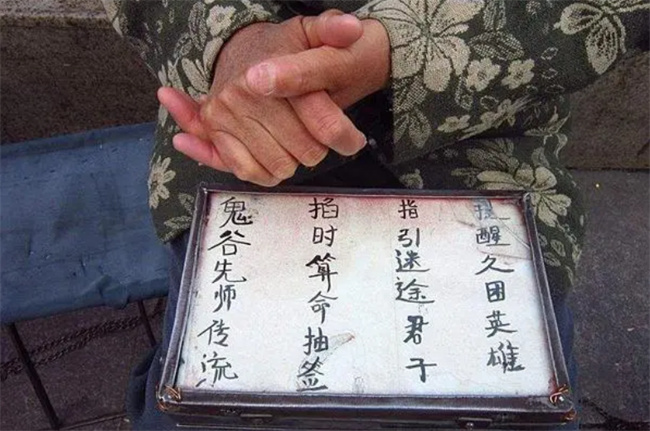 鬼谷先师传流
掐时算命抽签
指引迷途君子
提醒久困英雄